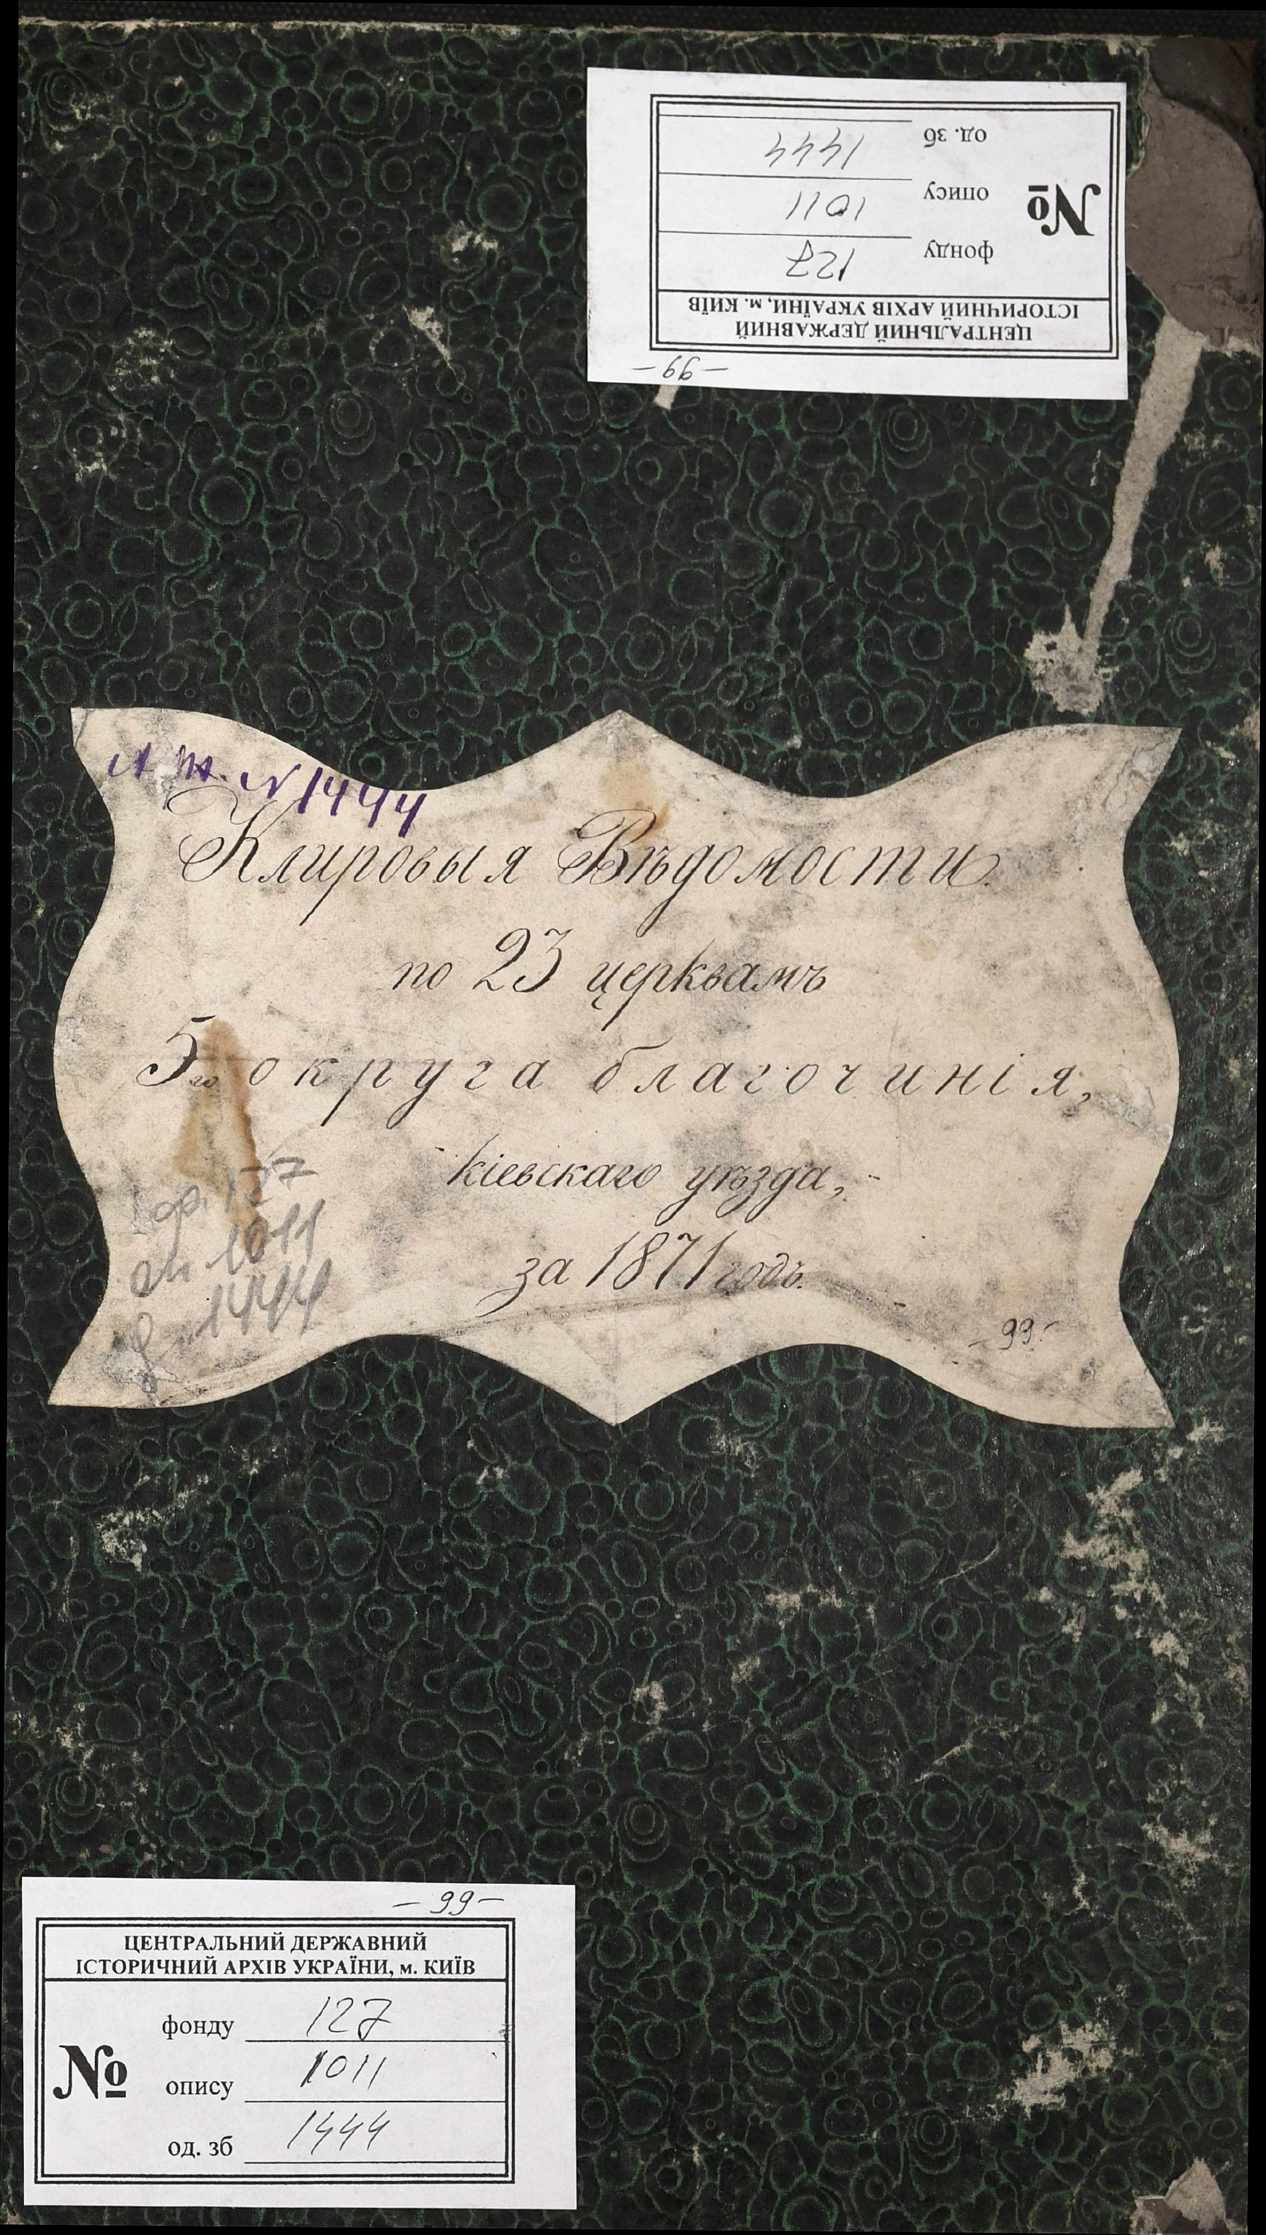 ЦЕНТРАЛЬНИЙ ДЕРЖАВНИЙ
ІСТОРИЧНИЙ АРХІВ УКРАЇНИ, м. КИЇВ
№
фонду 127
опису 1011
од. зб 1444
-99-
N 1444
Клировыя Вѣдомости
по 23 церквамъ
5го округа благочинія,
кіевскаго уѣзда,
за 1871 годъ.
ф. 127
оп 1011
1444
-99-
-99-
ЦЕНТРАЛЬНИЙ ДЕРЖАВНИЙ
ІСТОРИЧНИЙ АРХІВ УКРАЇНИ, м. КИЇВ
№
фонду 127
опису 1011
од. зб 1444